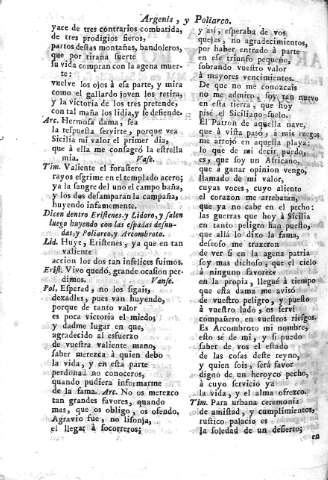 Argenis, y Poliarco.
yace de tres contrarios combatida,
de tres prodigios fieros,
partos destas montañas, bandoleros,
que por tirana suerte
su vida compran con la agena muer-
te:
vuelve los ojos á esta parte, y mira
como el gallardo joven los retira,
y la victoria de los tres pretende,
con tal maña los lidia, y se defiende.
Arc. Hermosa dama, sea
la respuesta servirte, porque vea
Sicilia mi valor el primer dia,
que á ella me consagró la estrella
mia. Vase.
Tim. Valiente el forastero
rayos esgrime en el templado acero;
ya la sangre del uno el campo baña,
y los dos desamparan la campaña,
huyendo infamemente.
Dicen dentro Eristenes y Lidoro, y salen
luego huyendo con las espadas desnu-
das, y Poliarco y Arcombroto.
Lid. Huye, Eristenes, ya que en tan
valiente
accion los dos tan infelices fuimos.
Erist. Vivo quedó, grande ocasion per-
dimos. Vanse.
Pol. Esperad, no los sigais,
dexadles, pues van huyendo,
porque de tanto valor
es poca victoria el miedo;
y dadme lugar en que,
agradecido al esfuerzo
de vuestra valiente mano,
saber merezca á quien debo
la vida, y en esta parte
perdona no conoceros,
quando pudiera informarme
de la fama. Arc. No os merezco
tan grandes favores, quando
mas, que os obligo, os ofendo.
Agravio fue, no lisonja,
el llegar á socorreros;
y asi, esperaba de vos
quejas, no agradecimientos,
por haber entrado á parte
en ese triunfo pequeño,
sobrando vuestro valor
á mayores vencimientos.
De que no me conozcais
no me admiro, soy tan nuevo
en esta tierra, que hoy
pisé el Siciliano suelo.
El Patron de aquella nave,
que á vista pasó, á mis ruegos
me arrojó en aquella playa:
lo que de mi decir puedo,
es; que soy un Africano,
que á ganar opinion vengo,
llamado de mi valor,
cuyas voces, cuyo aliento
el corazon me arrebatan,
que ya no cabe en el pecho:
las guerras que hoy á Sicilia
en tanto peligro han puesto,
que allá lo dixo la fama,
deseoso me traxeron
de ver si en la agena patria
soy mas dichoso, que el cielo
á ninguno favorece
en la propia, llegué á tiempo
que esta dama me avisó
de vuestro peligro, y puesto
á vuestro lado, os serví
compañero en vuestros riesgos.
Es Arcombroto mi nombre,
esto sé de mi, y si puedo
saber de vos el estado
de las cosas deste reyno,
y quien sois, será favor
digno de un heroyco pecho,
á cuyo servicio ya
la vida, y el alma ofrezco.
Tim. Para urbana ceremonia
de amistad, y cumplimientos,
rustico palacio es
la soledad de un desierto;
en